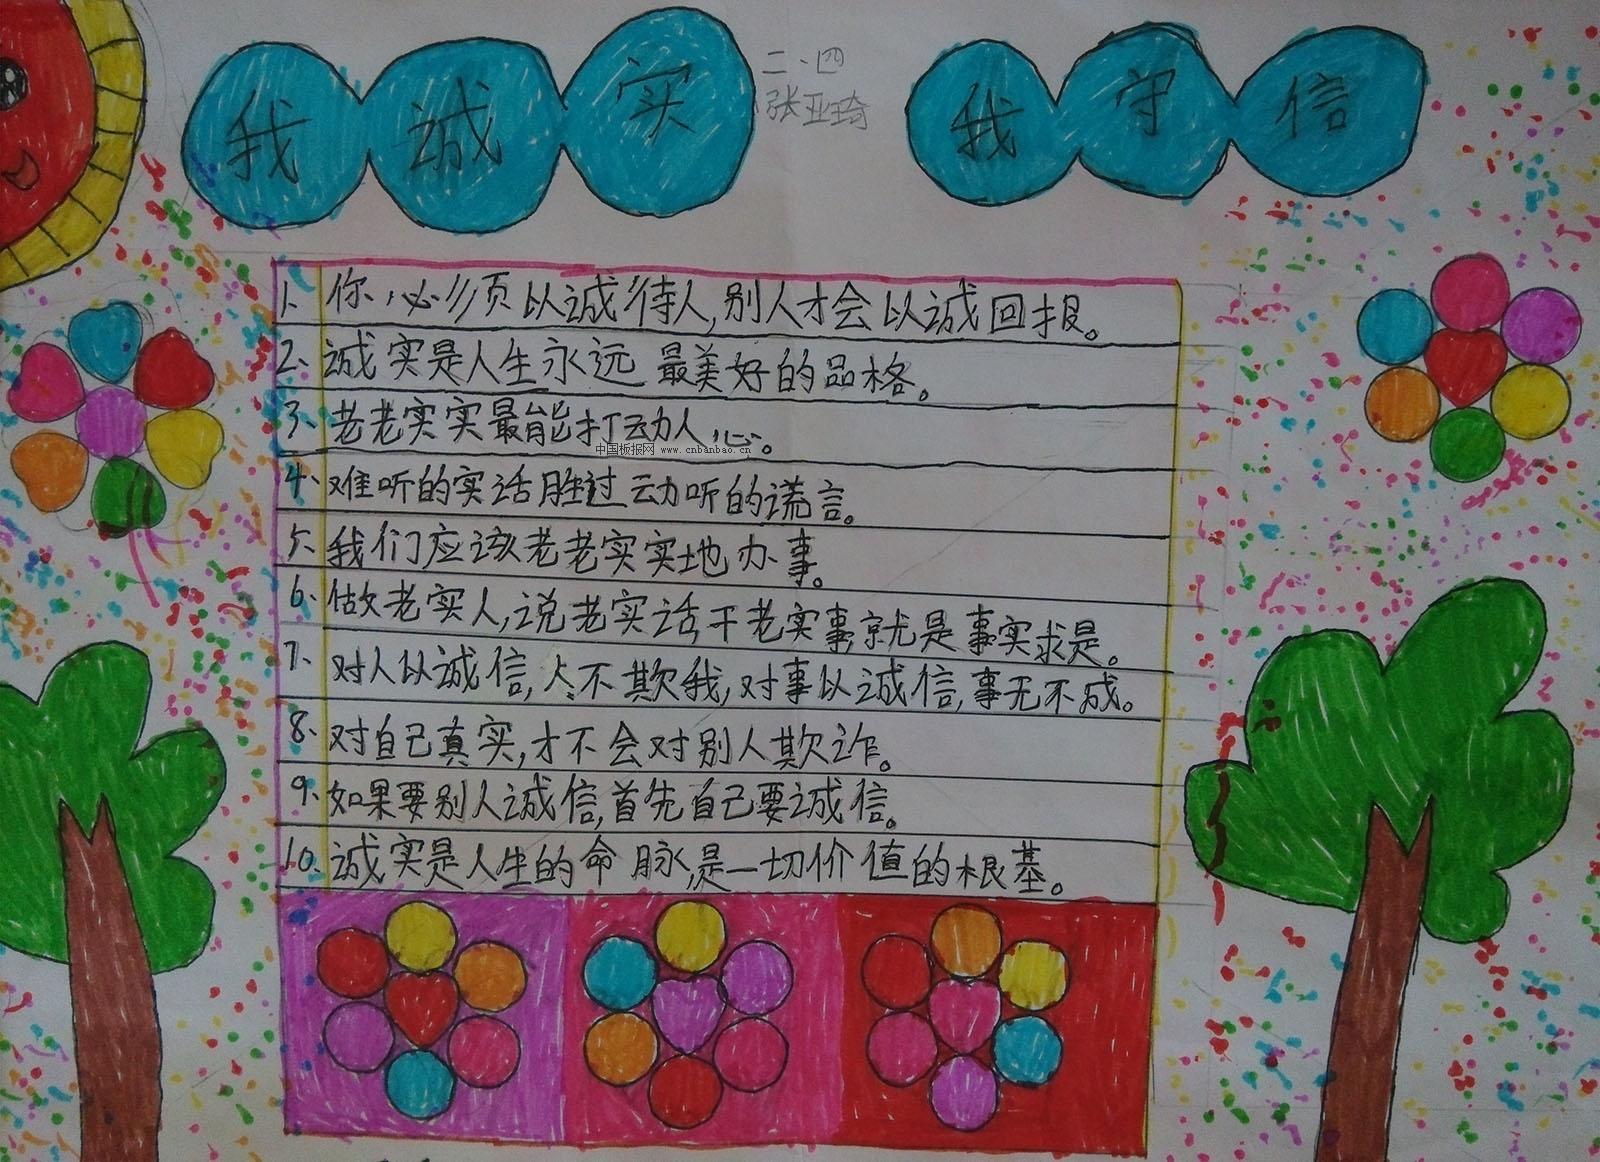 我诚实
二、四
张亚琦
我守信
1、你必须以诚待人,别人才会以诚回报。
2、诚实是人生永远最美好的品格。
3、老老实实最能打动人心。
中国板报网 www.cnbanbao.cn
4、难听的实话胜过动听的谎言。
5、我们应该老老实实地办事。
6、做老实人,说老实话,干老实事,就是事实求是。
7、对人以诚信,人不欺我,对事以诚信,事无不成。
8、对自己真实,才不会对别人欺诈。
9、如果要别人诚信,首先自己要诚信。
10、诚实是人生的命脉,是一切价值的根基。